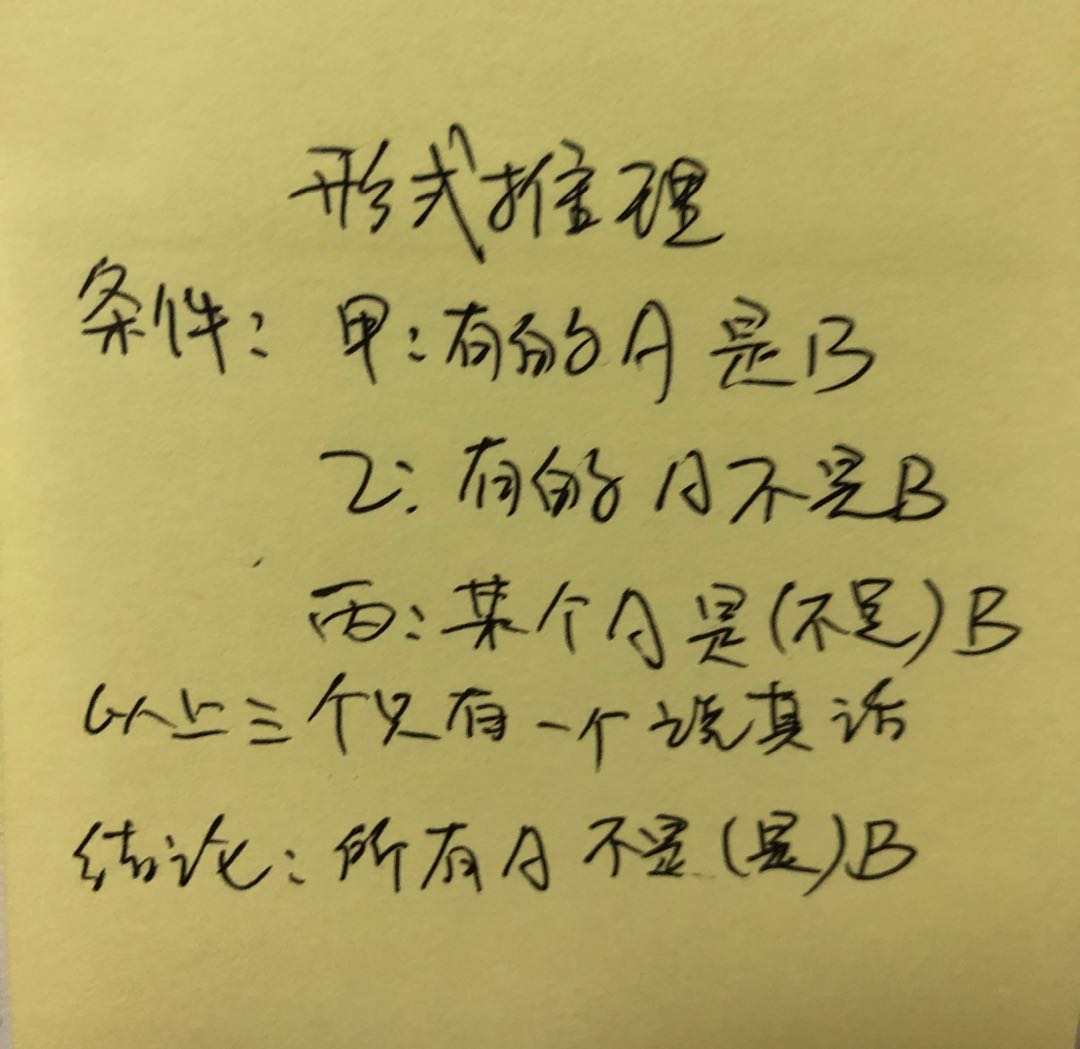 形式推理
条件：甲：有的A是B
乙：有的A不是B
丙：某个A是(不是)B
以上三个只有一个说真话
结论：所有A不是(是)B